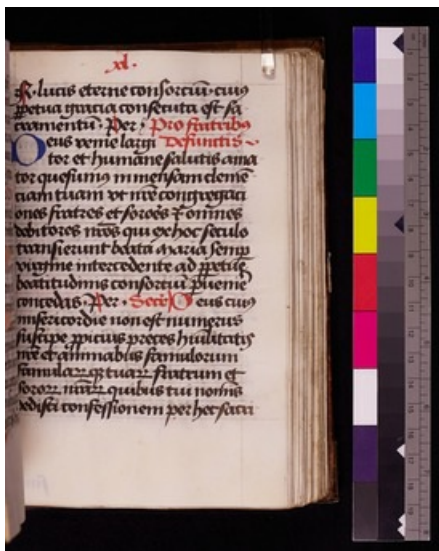 xl.
R. lucis eterne consorciū. cuiꝰ
ꝑpetua gracia consecuta est sa
cramentū. Per. Pro fratribꝰ
Deus venie largi Defunctis
tor et humane salutis ama
tor quesumus inmensam clemē
ciam tuam vt nr̄e congregaci
ones fratres et sorores ⁊ omnes
debitores nr̄os qui ex hoc seculo
transierunt beata maria semꝑ
virgine intercedente ad ꝑpetue
beatitudinis consorciū ꝑuenire
concedas. Per. Secr̄. Deus cuiꝰ
misericordie non est numerus
suscipe ꝓpicius preces huilitatis
nr̄e et animabus famulorum
famulaꝝ qꝫ tuaꝝ fratrum et
soroꝝ nr̄aꝝ quibus tui nominis
dedisti confessionem per hec sacra